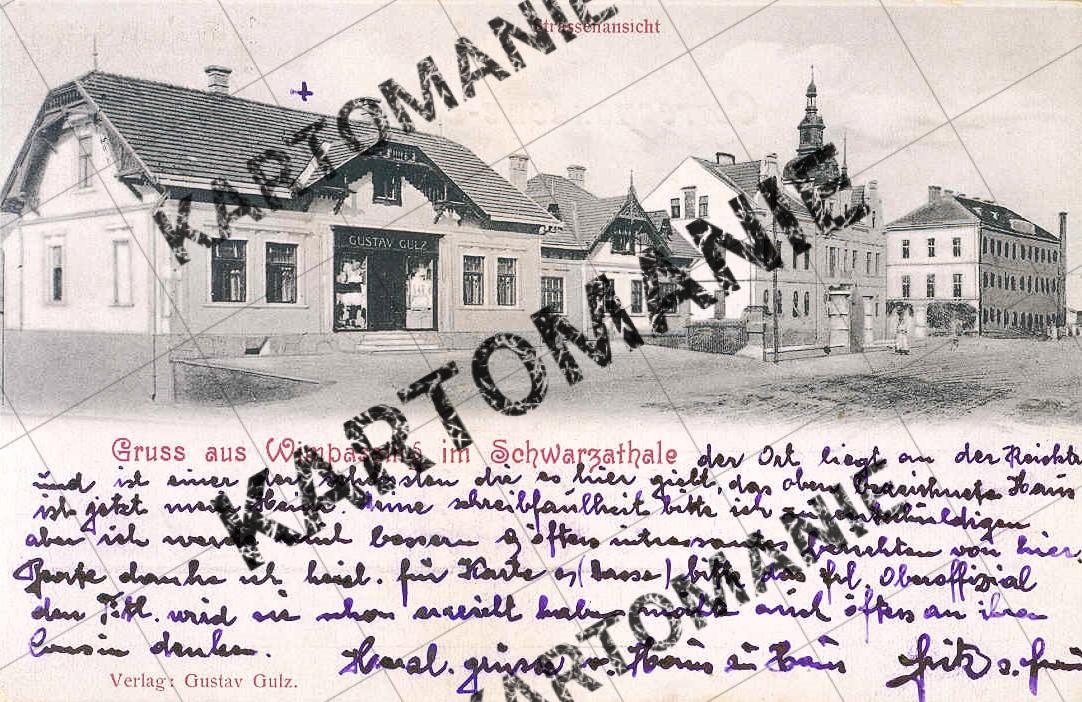 Strassenansicht
KARTOMANIE
KARTOMANIE
GUSTAV GULZ
KARTOMANIE
Gruss aus Wimpassing im Schwarzathale
der Ort liegt an der
und ist einer der schönsten die es hier giebt, das oben bezeichnete Haus
ist jetzt mein Heim. Meine schreibfaulheit bitte ich zu entschuldigen
aber ich werde mich bessern & öfters intressantes berichten von hier.
danke ich herzl. für Karte & bitte das frl. Oberoffizial
den Titl. wird sie schon ereilt haben möcht auch öfters an ihren
Cousin denken.
Herzl. grüsse v. Haus zu Haus
KARTOMANIE
KARTOMANIE
Verlag: Gustav Gulz.